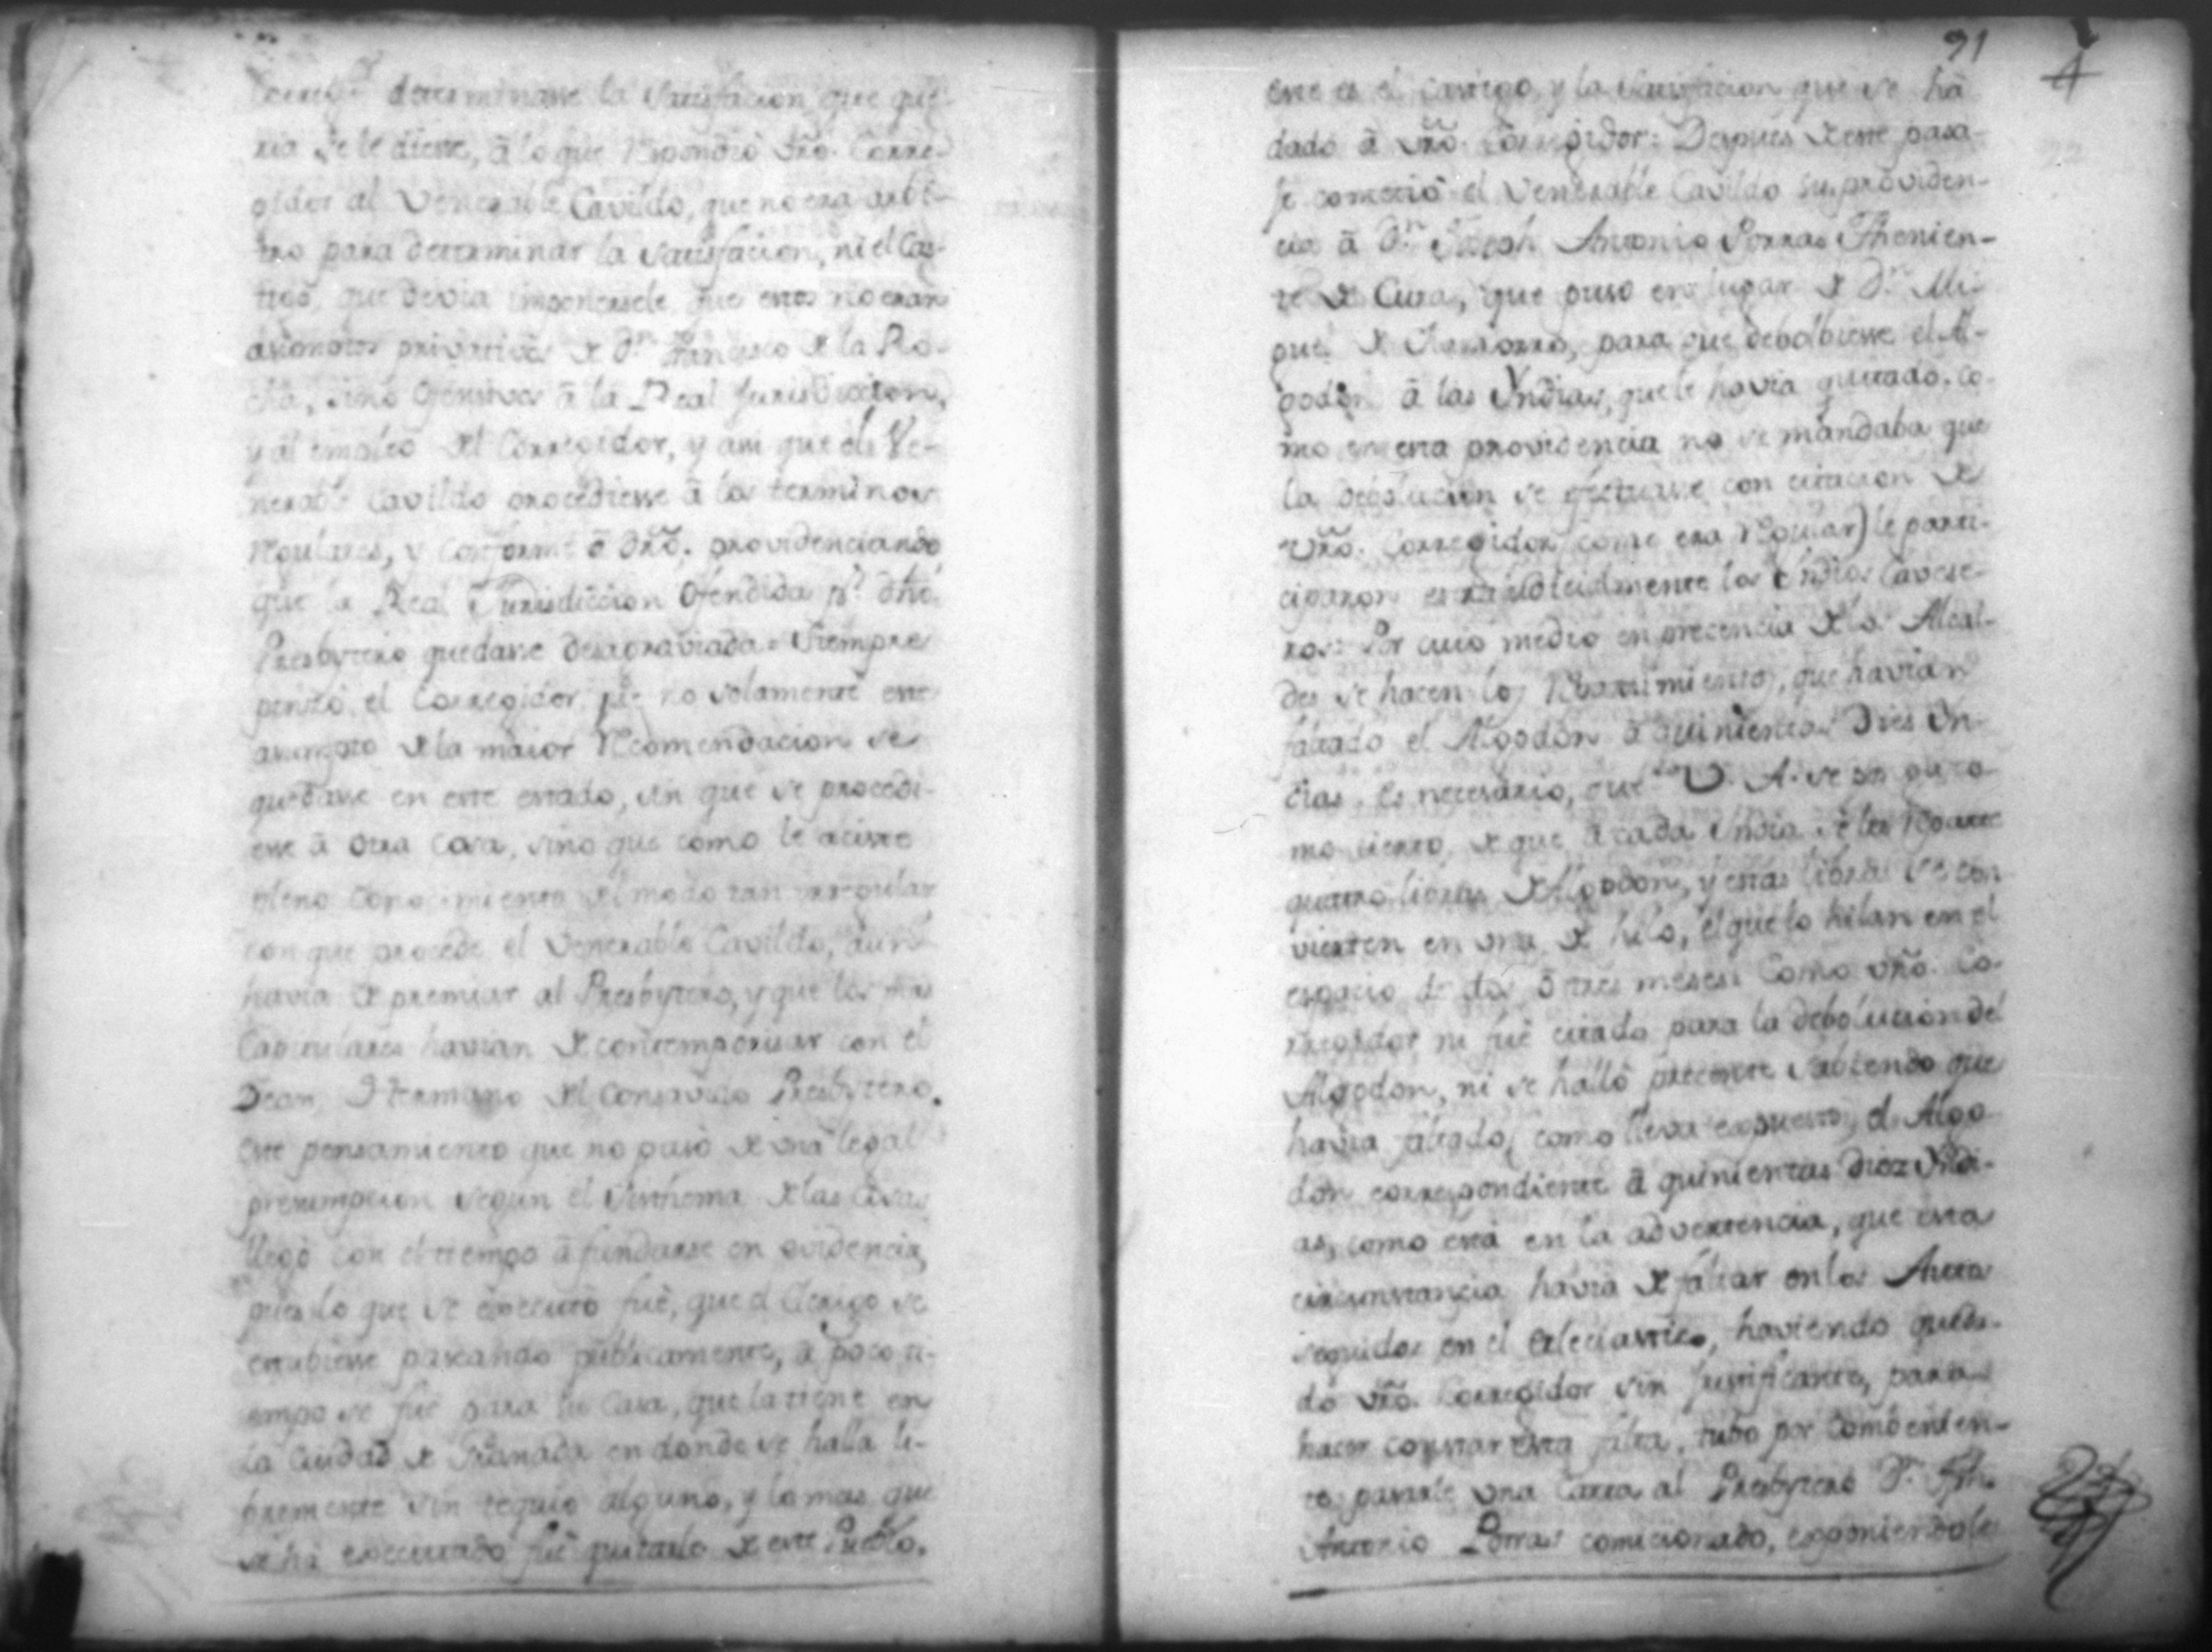 determinasse la Satisfacion que que-
ria se le diesse, â lo que Respondiò Vrô. Corre-
gidor al Venerable Cavildo, que no era arbi-
tro para determinar la Satisfacion, ni el Cas-
tigo, que devia imponersele que estos no eran
assumptos privativos de Dn. Francisco de la Ro-
cha, sino ofensivos â la Real Jurisdiccion,
y al empleo del Corregidor, y assi que el Ve-
nerable Cavildo procediesse â los terminos
Regulares, y conforme â Dro. providenciando,
que la Real Jurisdiccion Ofendida pr. dho.
Presbytero quedasse desagraviada. Siempre
pensò el Corregidor que no solamente este
assumpto de la maior Recomendacion se
quedasse en este estado, sin que se procedi-
esse â otra cosa, sino que como le asiste
pleno conocimiento del modo tan irregular
con que procede el Venerable Cavildo, aun
havia de premiar al Presbytero, y que los mas
Capitulares havian de contemporisar con el
Dean, Hermano del Consavido Presbytero.
Este pensamiento que no pasò de una legal
presumpcion segun el Systhema de las Cosas
llegò con el tiempo â fundarse en evidencia,
pues lo que se executò fuè, que el Clerigo se
estubiesse paseando publicamente, â poco ti-
empo se fuè para su Casa, que la tiene en
la Ciudad de Granada en donde se halla li-
bremente sin seguio alguno, y lo mas que
se ha executado fuè quitarlo de este Pueblo.
91
este es el Castigo, y la Satisfacion que se hà
dado â Vrô. Corregidor: Despues de este pasa-
je cometiò el Venerable Cavildo su providen-
cia â Dn. Joseph Antonio Porras Thenien-
te de Cura, que puso en lugar de Dn. Mi-
guel de, para que debolbiesse el Al-
godon â las Yndias, que le havia quitado. Co-
mo en esta providencia no se mandaba que
la debolucion se efectuasse con citacion de
Vrô. Corregidor como era Regular) le parti-
ciparon extrajudicialmente los Yndios Cavese-
ros: Por cuio medio en precencia de los Alcal-
des se hacen los Repartimientos, que havian
faltado el Algodon â quinientas Dies Yn-
dias. Es necesario, que V. A. se
, de que â cada Yndia se les Reparte
quatro libras de Algodon, y estas libras se con
vierten en una de hilo, el que lo hilan en el
espacio de dos, ô tres meses. Como Vrô. Co-
rregidor ni fuè citado para la debolucion del
Algodon, ni se hallò precente sabiendo que
havia faltado, (como lleva expuesto) el Algo-
don correspondiente â quinientas diez Yndi-
as, como està en la advertencia, que esta
circunstancia havia de faltar en los Autos
seguidos en el Eclesiastico, haviendo queda-
do Vrô. Corregidor sin justificante, para
hacer constar esta falta, tubo por combenien-
te pasarle una Carta al Presbytero Dn. Jph.
Antonio Porras comicionado, exponiendole